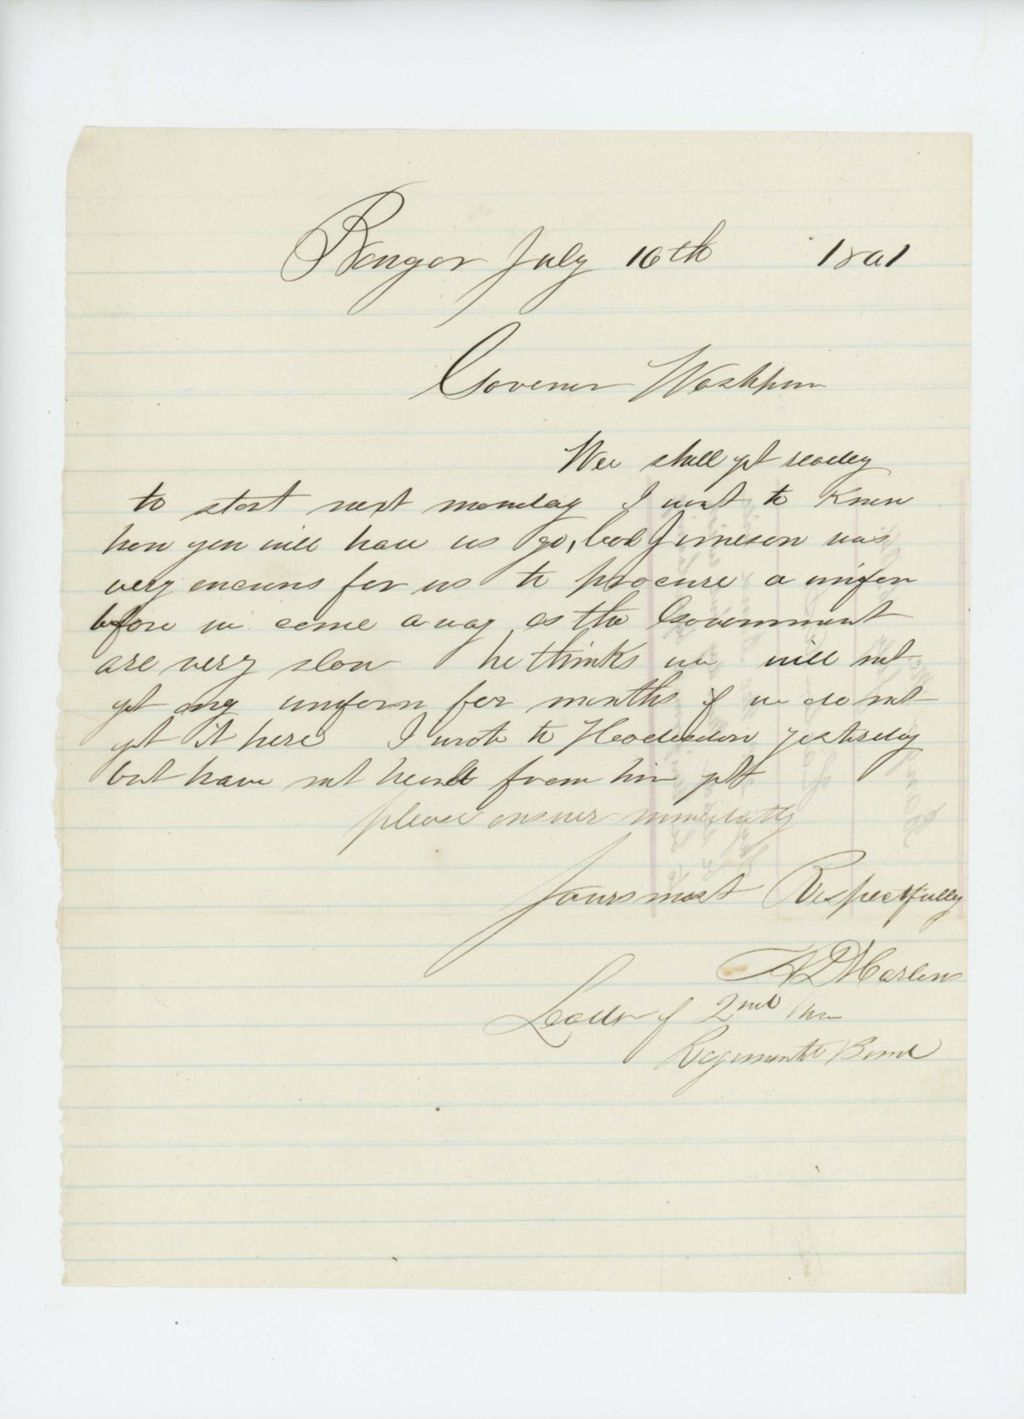 Bangor July 16th 1861
Governer Washburn
Wee shall get readey
to start next monday I want to know
how you will have us go, Col Jimeson was
very anxious for us to procure a uniform
before we come away as the Government
are very slow he thinks we will not
get any uniform for months if we do not
get it here I wrote to Hodsdon yesterday
but have not heard from him yet
please answer immediatly
Yours most Respectfully
A D Harlow
Leader of 2nd Me
Regimental Band